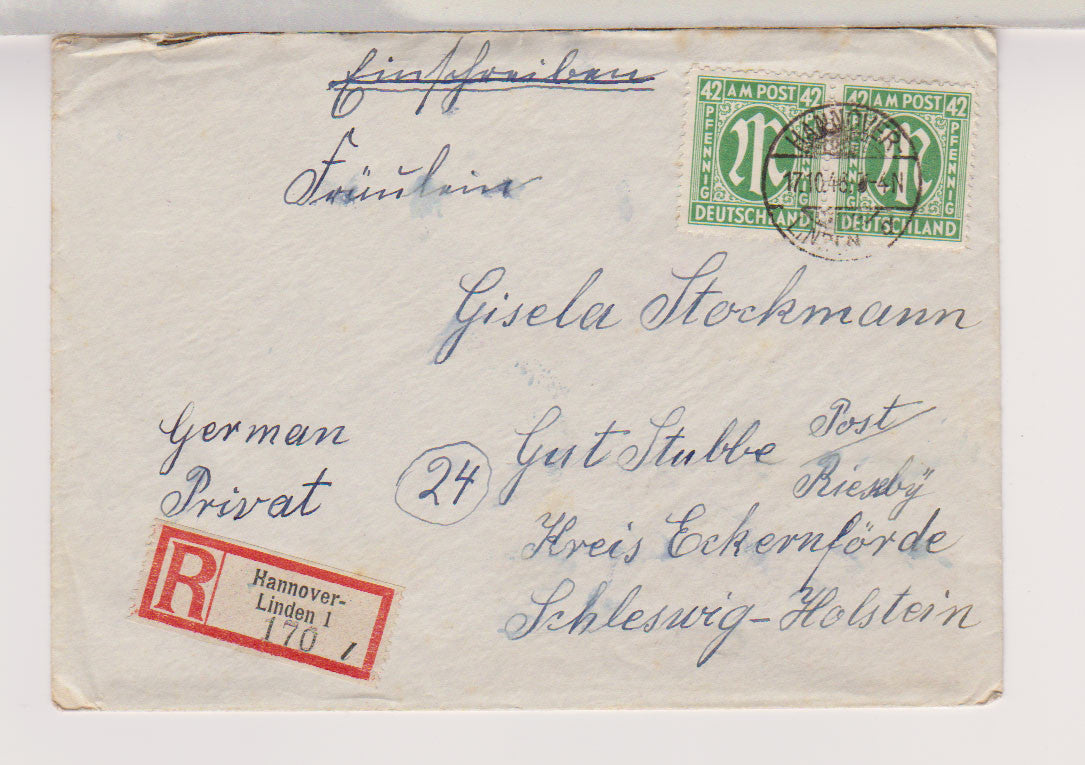 Einschreiben
Fräulein
42 AM POST 42
PFENNIG
DEUTSCHLAND
42 AM POST 42
PFENNIG
DEUTSCHLAND
HANNOVER
17.10.46. -4N
LINDEN
Gisela Stockmann
German
Privat
24
Gut Stubbe Post
Rieseby
Kreis Eckernförde
Schleswig-Holstein
R
Hannover-
Linden 1
170